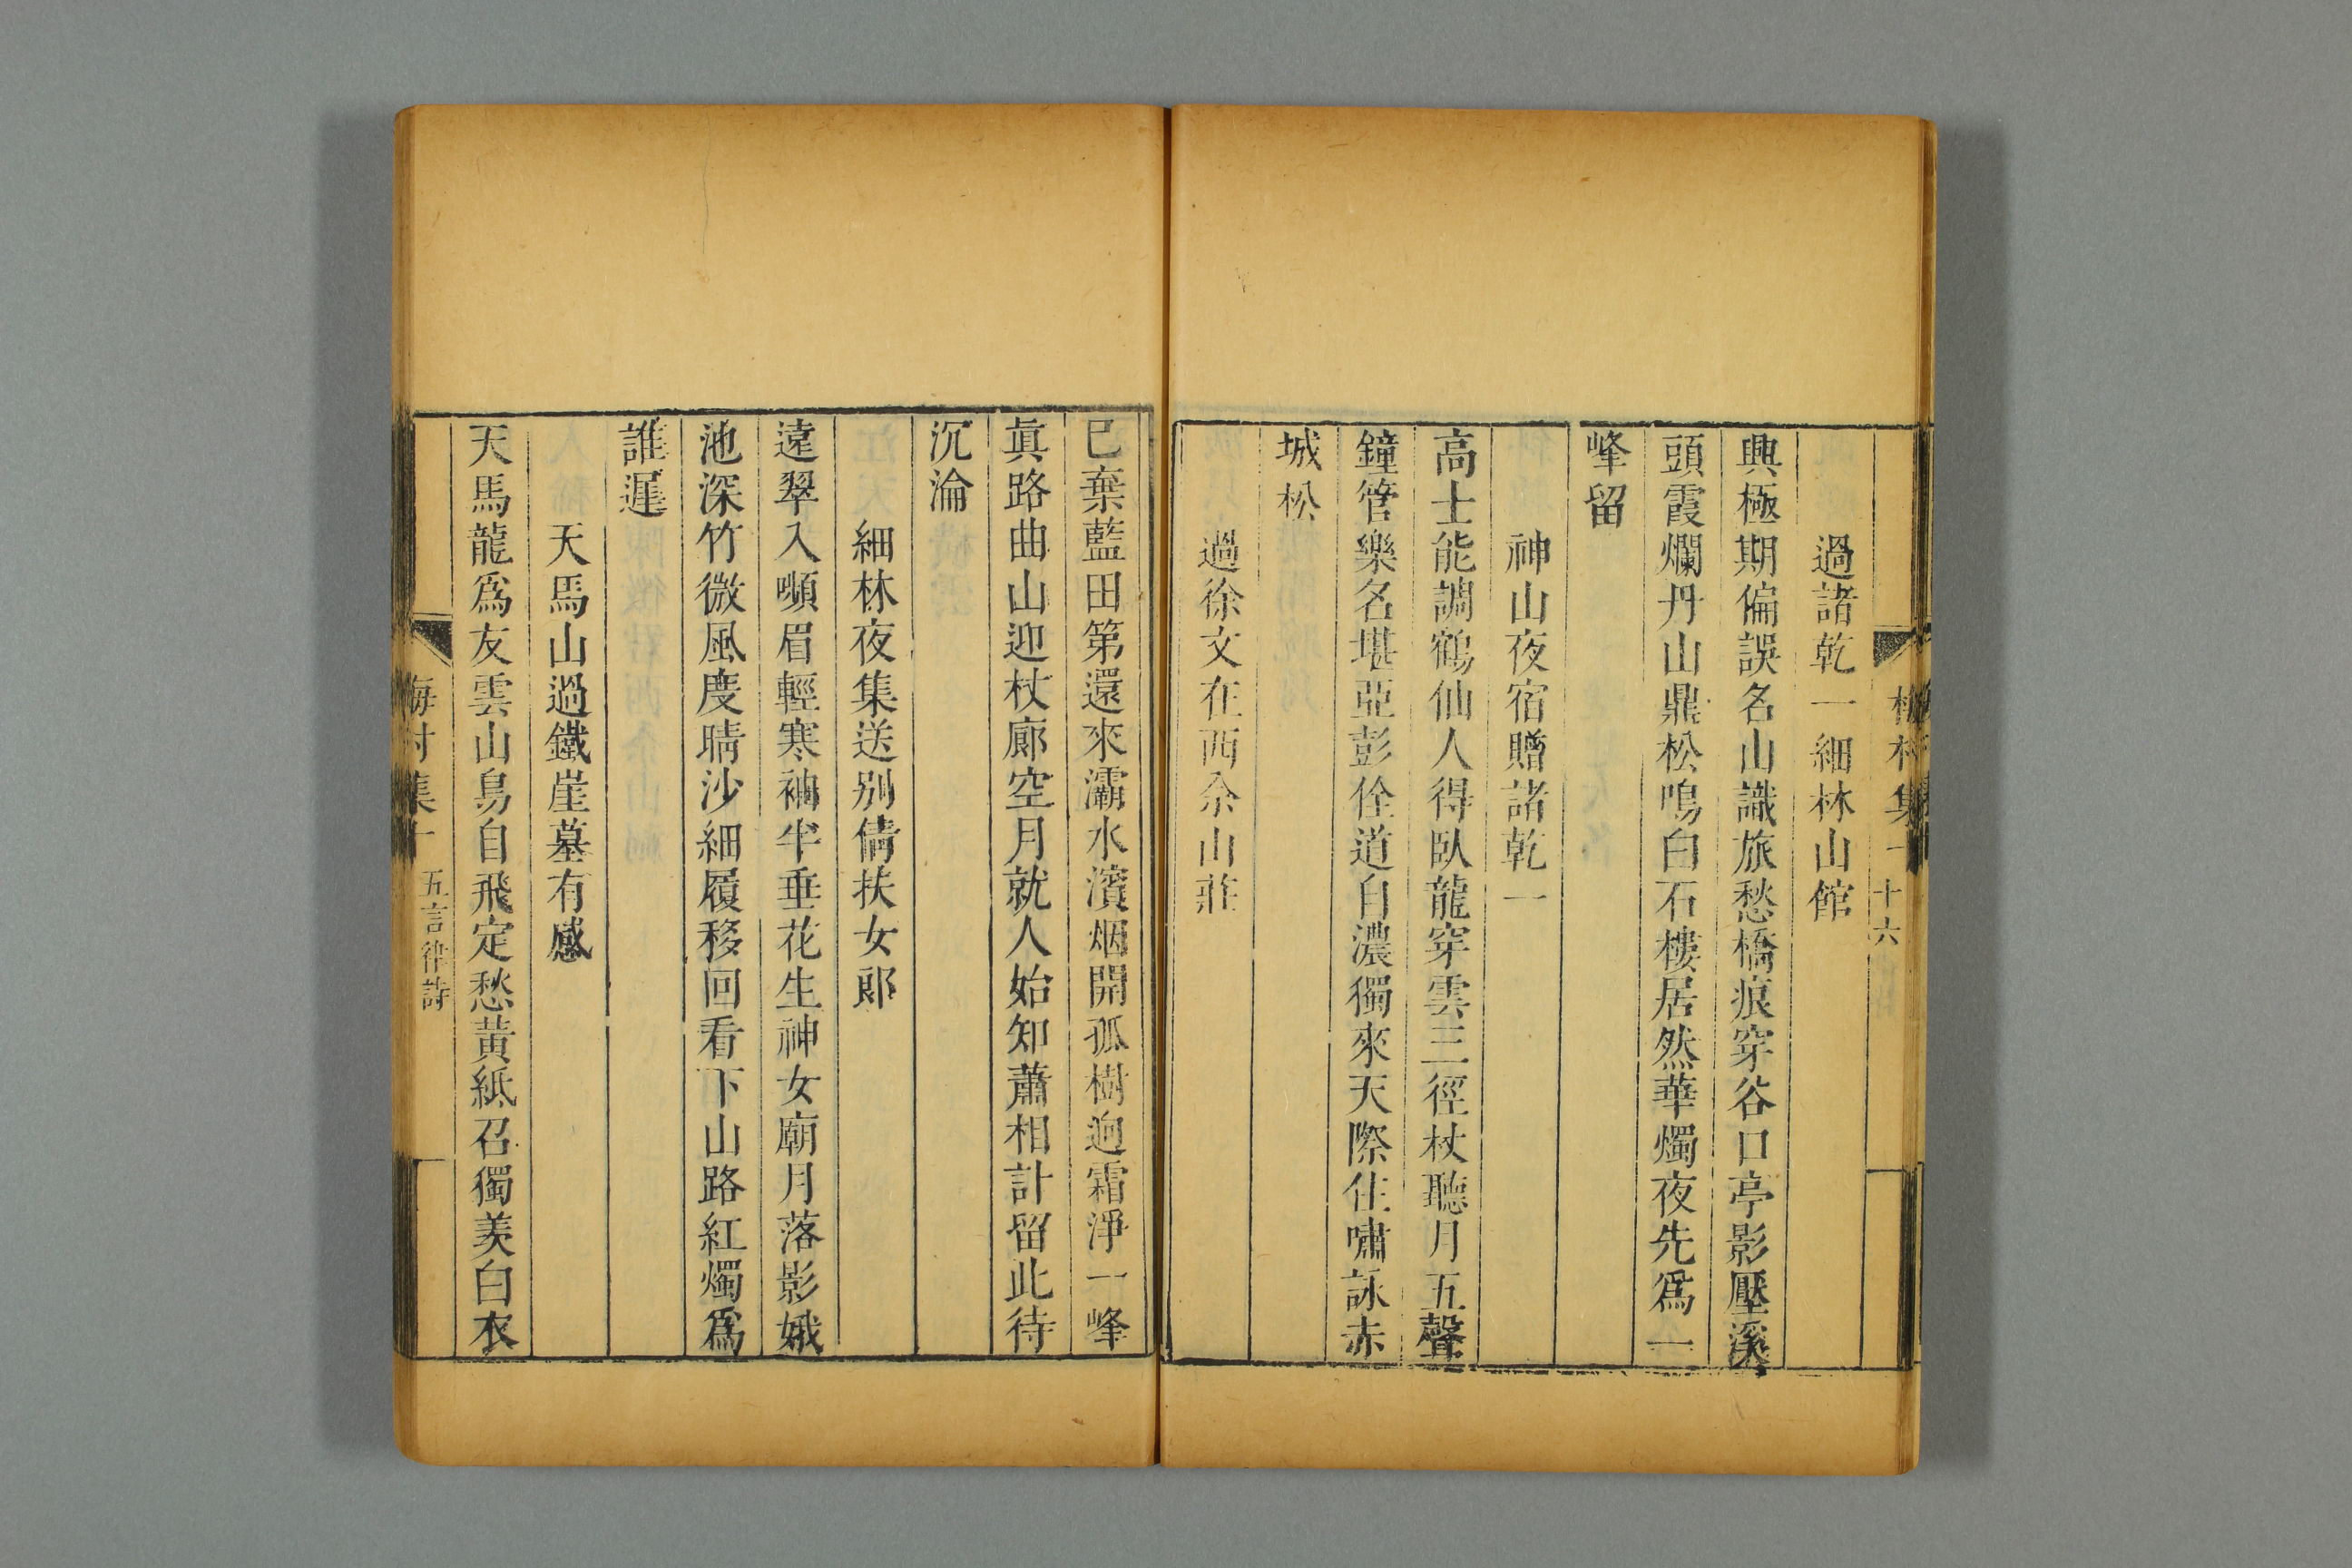 十六
過諸乾一細林山館
興極期偏誤名山識旅愁橋痕穿谷口亭影壓溪
頭霞爛丹山鼎松鳴白石樓居然華燭夜先爲一
峰留
神山夜宿贈諸乾一
高士能調鶴仙人得臥龍穿雲三徑杖聽月五聲
鐘管樂名堪亞彭佺道自濃獨來天際住嘯詠赤
城松
過徐文在西佘山莊
已棄藍田第還來灞水濱烟開孤樹迥霜淨一峰
眞路曲山迎杖廊空月就人始知蕭相計留此待
沉淪
細林夜集送別倩扶女郎
遠翠入嚬眉輕寒袖半垂花生神女廟月落影娥
池深竹微風度晴沙細履移回看下山路紅燭爲
誰遲
天馬山過鐵崖墓有感
天馬龍爲友雲山鳥自飛定愁黃紙召獨羨白衣
梅村集十 五言律詩